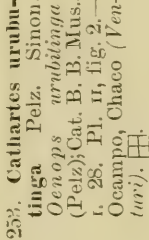 25?. Cathartes urubu-
tinga Pelz. Sinon.
Oenops urubitinga
(Pelz); Cat. B. B. Mus.
I. 28. Pl. II, fig. 2.—
Ocampo, Chaco (Ven-
turi).